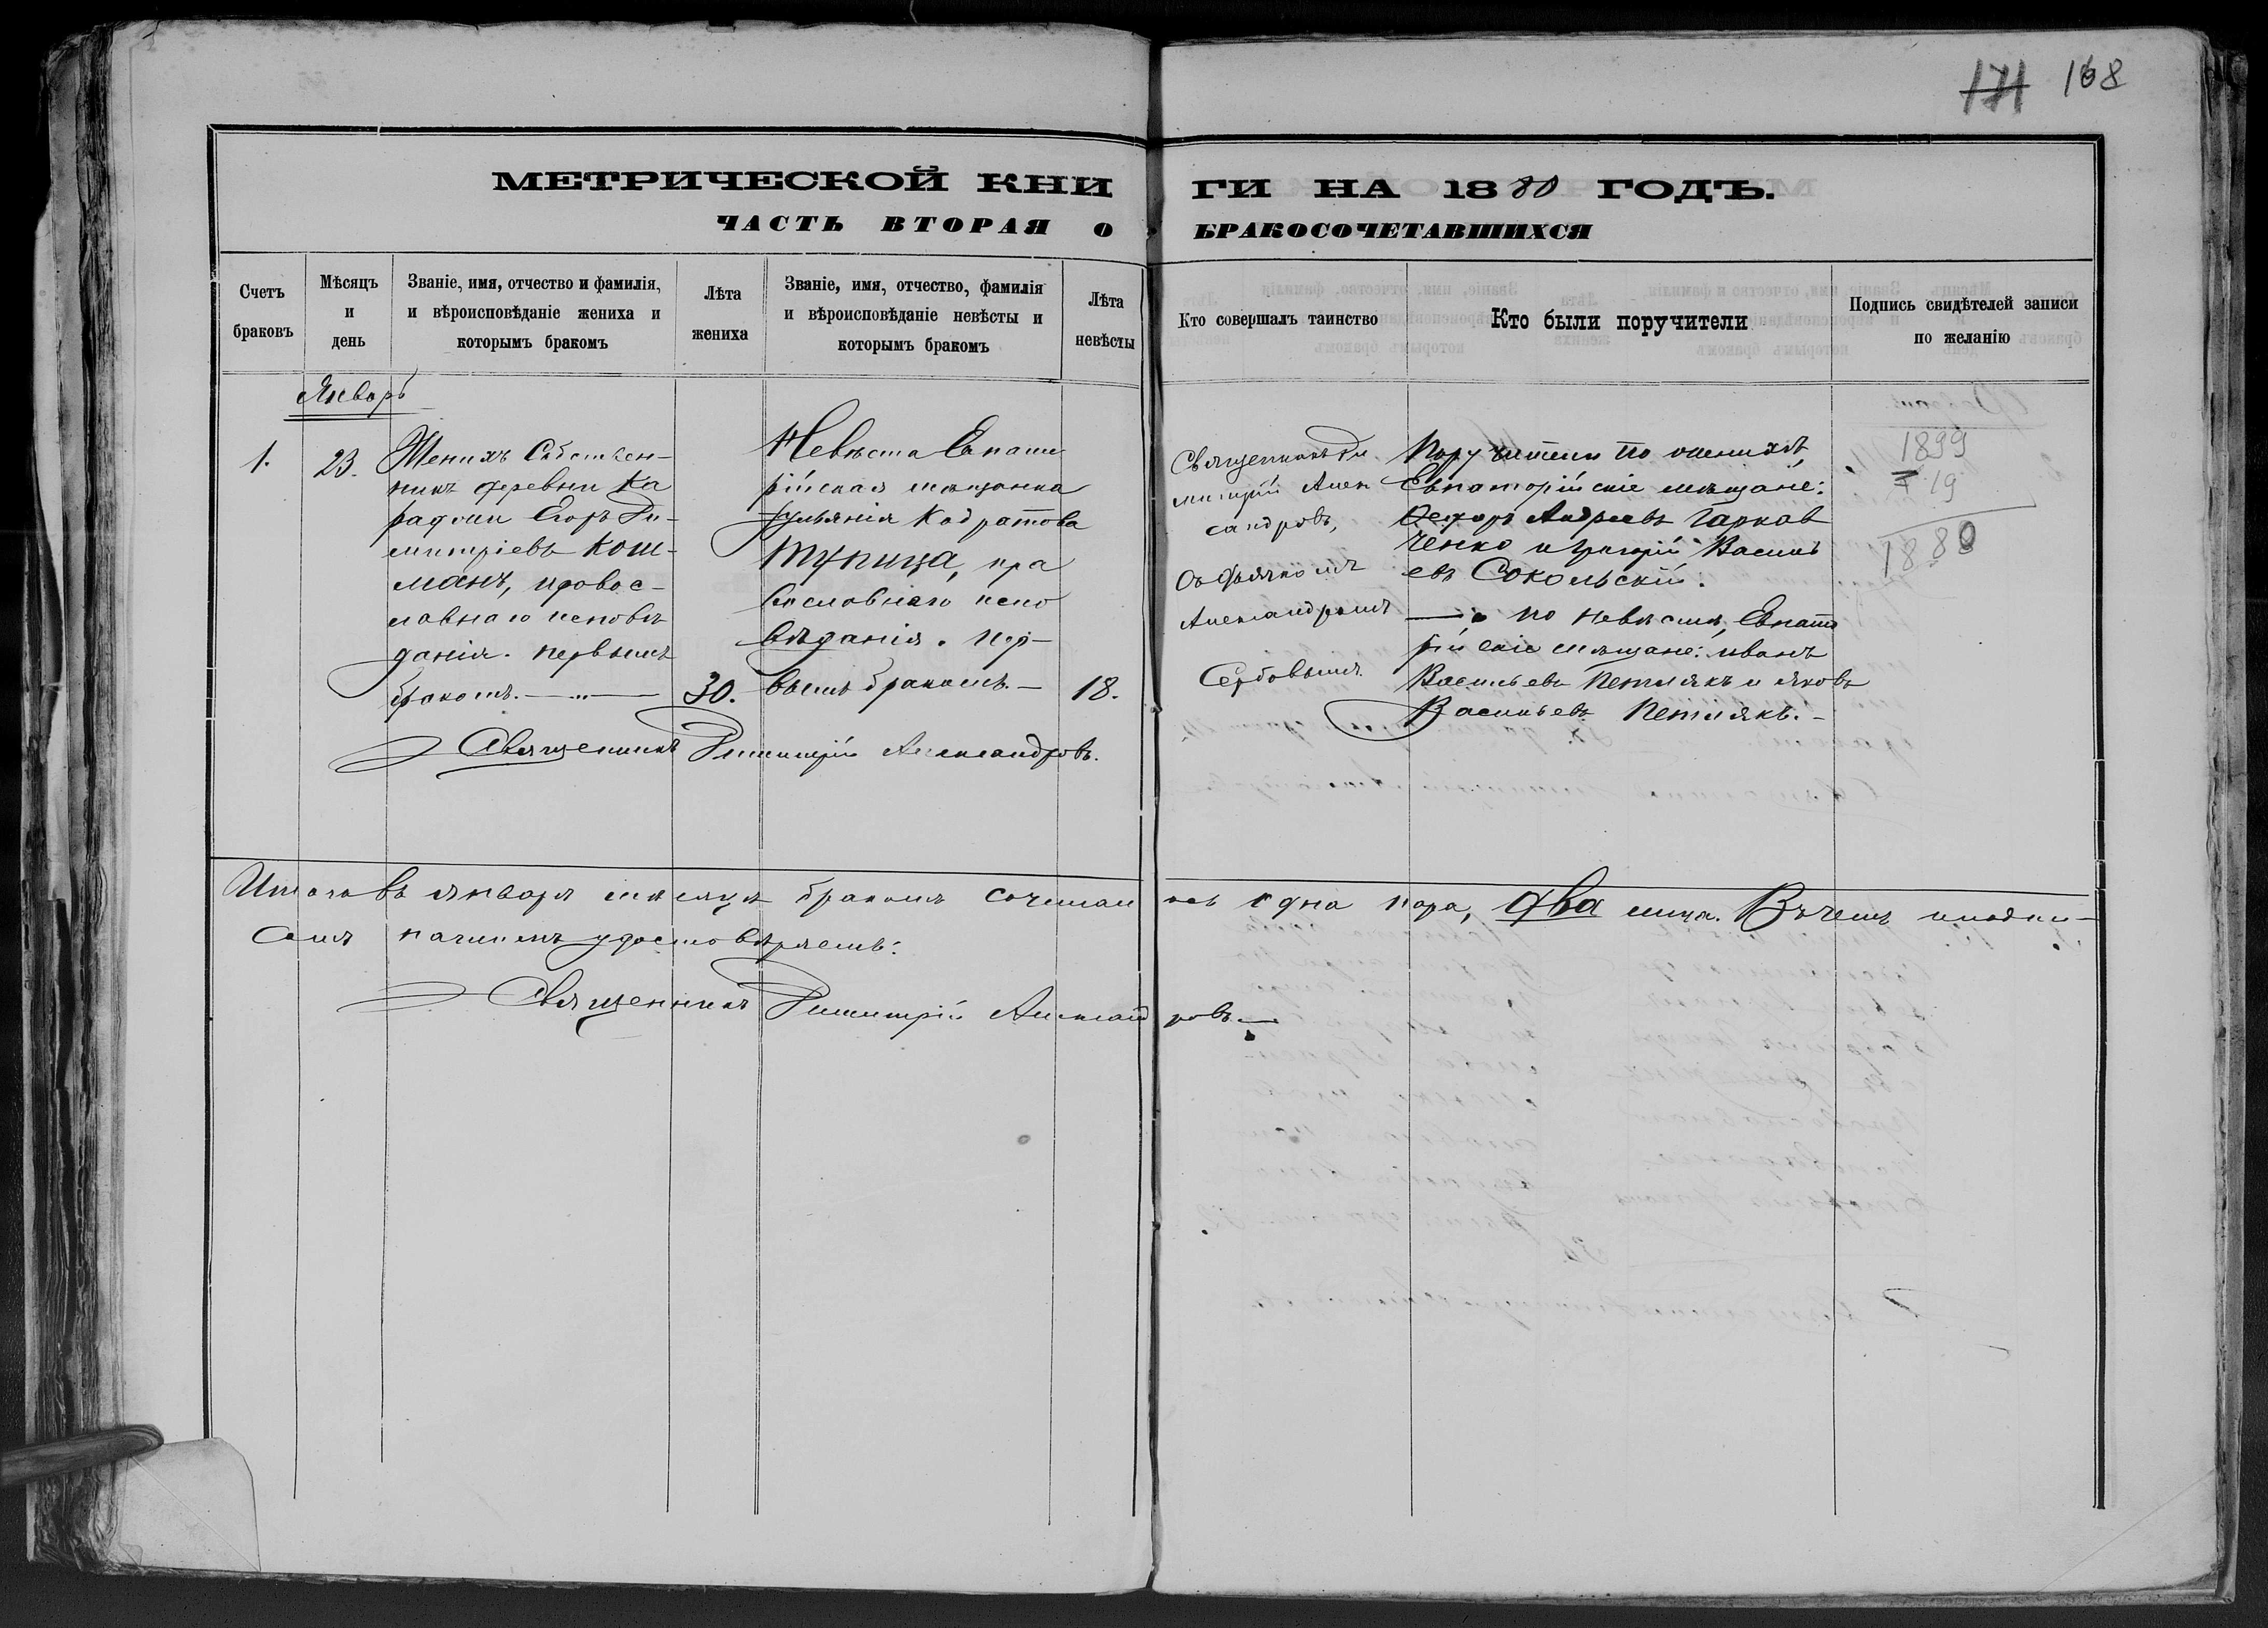 171 168
МЕТРИЧЕСКОЙ КНИГИ НА 1880 ГОДЪ.
ЧАСТЬ ВТОРАЯ О БРАКОСОЧЕТАВШИХСЯ
Счетъ
браковъ
Мѣсяцъ
и
день
Званіе, имя, отчество и фамилія,
и вѣроисповѣданіе жениха и
которымъ бракомъ
Лѣта
жениха
Званіе, имя, отчество, фамилія
и вѣроисповѣданіе невѣсты и
которымъ бракомъ
Лѣта
невѣсты
Кто совершалъ таинство
Кто были поручители
Подпись свидѣтелей записи
по желанію
Январь
1.
23.
Женихъ Собствен-
никъ деревни Ка
Егоръ Ди-
митріевъ Кош-
манъ, провос-
лавнаго исповѣ
данія. первымъ
бракомъ.
30.
Невѣста Евпато
рійская мѣщанка
Кодратова
Тупица, пра
вославнаго испо
вѣданія. пер-
вымъ бракомъ.
18.
Священникъ Димитрій Александровъ.
Священникъ Ди
митрій Алек
сандровъ,
съ дьячкомъ
Александромъ
Сербовымъ.
Поручители по женихѣ,
Евпаторійскіе мѣщане:
Ѳедоръ Андреевъ Гаркав
ченко и Григорій Василь
евъ Сокольскій.
по невѣстѣ, Евпато
рійскіе мѣщане: иванъ
Васильевъ Петлякъ и яковъ
Васильевъ Петлякъ.
1899
19
1880
Итого въ январѣ мѣсяцѣ бракомъ сочетались одна пара, два лица. Въ чемъ и подпи-
сомъ удостовѣряемъ:
Священникъ Димитрій Александровъ